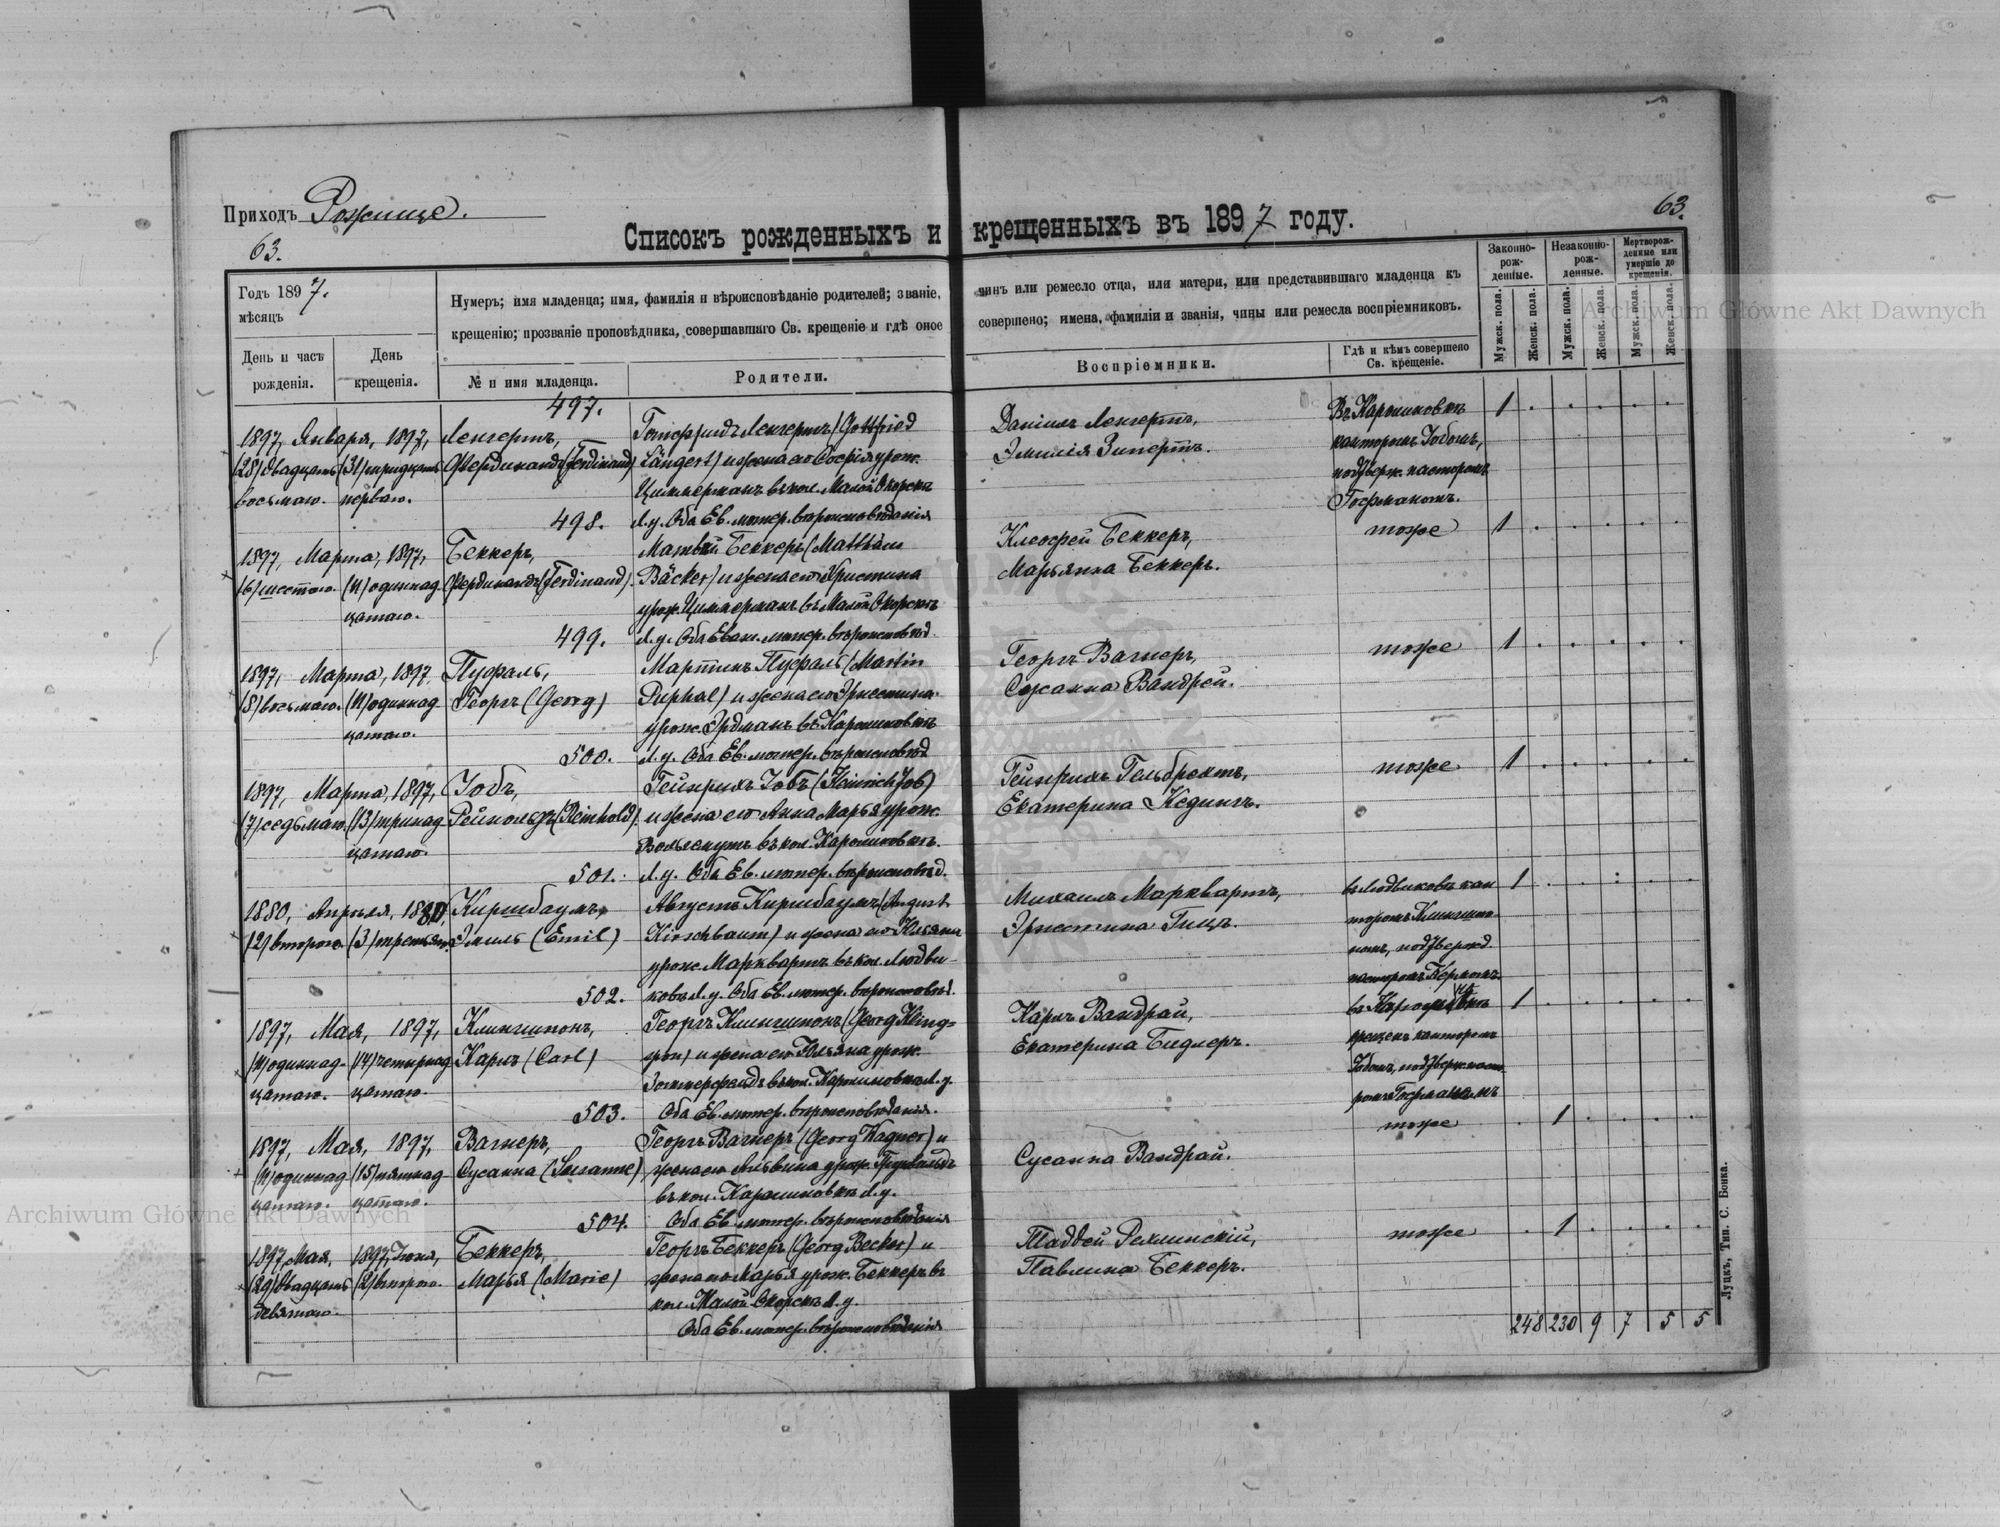 Приходъ Рожище.
63.
63.
Списокъ рожденныхъ и крещенныхъ въ 1897 году.
Годъ 1897.
мѣсяцъ
День и часъ рожденія.
День крещенія.
Нумеръ; имя младенца; имя, фамилія и вѣроисповѣданіе родителей; званіе,
крещенію; прозваніе проповѣдника, совершавшаго Св. крещеніе и гдѣ оное
№ и имя младенца.
Родители.
чинъ или ремесло отца, или матери, или представившаго младенца къ
совершено; имена, фамиліи и званія, чины или ремесла воспріемниковъ.
Воспріемники.
Гдѣ и кѣмъ совершено
Св. крещеніе.
Законно-рож-денные.
Незаконно-рож-денные.
Мертворож-денные или умершіе до крещенія.
Мужск. пола.
Женск. пола.
Мужск. пола.
Женск. пола.
Мужск. пола.
Женск. пола.
497.
1897, Января, 1897, Ленгертъ, Готфридъ Ленгертъ (Gottfried Даніилъ Ленгертъ, Въ Каролиновкѣ 1
(28) двадцать (31) тридцать Фердинандъ (Ferdinand) Längert) и жена его Софія урож. Эмилія Зипертъ. канторомъ Іобомъ,
восьмаго. перваго. Циммерманъ въ кол. Малой Окорскѣ подтверж. пасторомъ
Госфманомъ.
498. Л. у. Оба Ев. лютер. вѣроисповѣданія
1897, Марта, 1897, Беккеръ, Матвѣй Беккеръ (Matthäus Клеофей Беккеръ, тоже 1
(6) шестаго. (11) одиннад- Фердинандъ (Ferdinand). Bäcker) и жена его Христина Марьянна Беккеръ.
цатаго. урож. Циммерманъ въ Малой Окорскѣ
499. Л. у. Оба Еван. лютер. вѣроисповѣд.
1897, Марта, 1897 Пуфаль, Мартинъ Пуфаль (Martin Георгъ Вагнеръ, тоже 1
(8) восьмаго. (11) одиннад Георгъ (Georg) Puphal) и жена его Эрнестина Сузанна Вандрей.
цатаго. урож. Эрдманъ въ Каролиновкѣ
500. Л. у. Оба Ев. лютер. вѣроисповѣд
1897, Марта, 1897, Іобъ, Гейнрихъ Іобъ (Heinrich Job) Гейнрихъ Гельбрехтъ, тоже 1
(7) седьмаго. (13) тринад Рейнольдъ (Reinhold) и жена его Анна Марья урож. Екатерина Кединъ.
цатаго. въ кол. Каролиновкѣ.
501. Л. у. Оба Ев. лютер. вѣроисповѣд.
1880, Апрѣля, 1880, Киршбаумъ, Августъ Киршбаумъ (August Михаилъ Марквартъ, въ Людвиковѣ кан 1
(2) втораго (3) третьяго Эмиль (Emil) Kirschbaum) и жена его Юліяна Эрнестина Гицъ. торомъ
урож. Марквартъ въ кол. Людви- подтвержд.
502. ковѣ Л. у. Оба Ев. лютер. вѣроисповѣд. пасторомъ
1897, Мая, 1897, Клингшпонъ, Георгъ Клингшпонъ (Georg Kling- Карлъ Вандрай, въ Каролиновкѣ 1
(11) одиннад- (14) четырнад Карлъ (Carl) и жена его Юліяна урож. Екатерина Бидлеръ. крещенъ канторомъ
цатаго. цатаго. Зоммерфельдъ въ кол. Каролиновкѣ Л. у. Іобомъ, подтверж. пасто-
503. Оба Ев. лютер. вѣроисповѣданія. ромъ Госфманомъ
1897, Мая, 1897, Вагнеръ, Георгъ Вагнеръ (Georg Wagner) и Сусанна Вандрай. тоже 1
(11) одиннад (15) пятнад Сусанна (Susanne) жена его Альвина урож.
цатаго. цатаго. въ кол. Каролиновкѣ Л. у.
504. Оба Ев. лютер. вѣроисповѣданія
1897, Мая, 1897, Іюня, Беккеръ, Георгъ Беккеръ (Georg Becker) и Таддей тоже 1
(29) двадцать (2) втораго. Марья (Marie) жена его Марья урож. Беккеръ въ Павлина Беккеръ.
девятаго. кол. Малой Окорскѣ Л. у.
Оба Ев. лютер. вѣроисповѣданія
248 230 9 7 5 5
Луцкъ, Тип. С. Бонка.
Archiwum Główne Akt Dawnych
Archiwum Główne Akt Dawnych